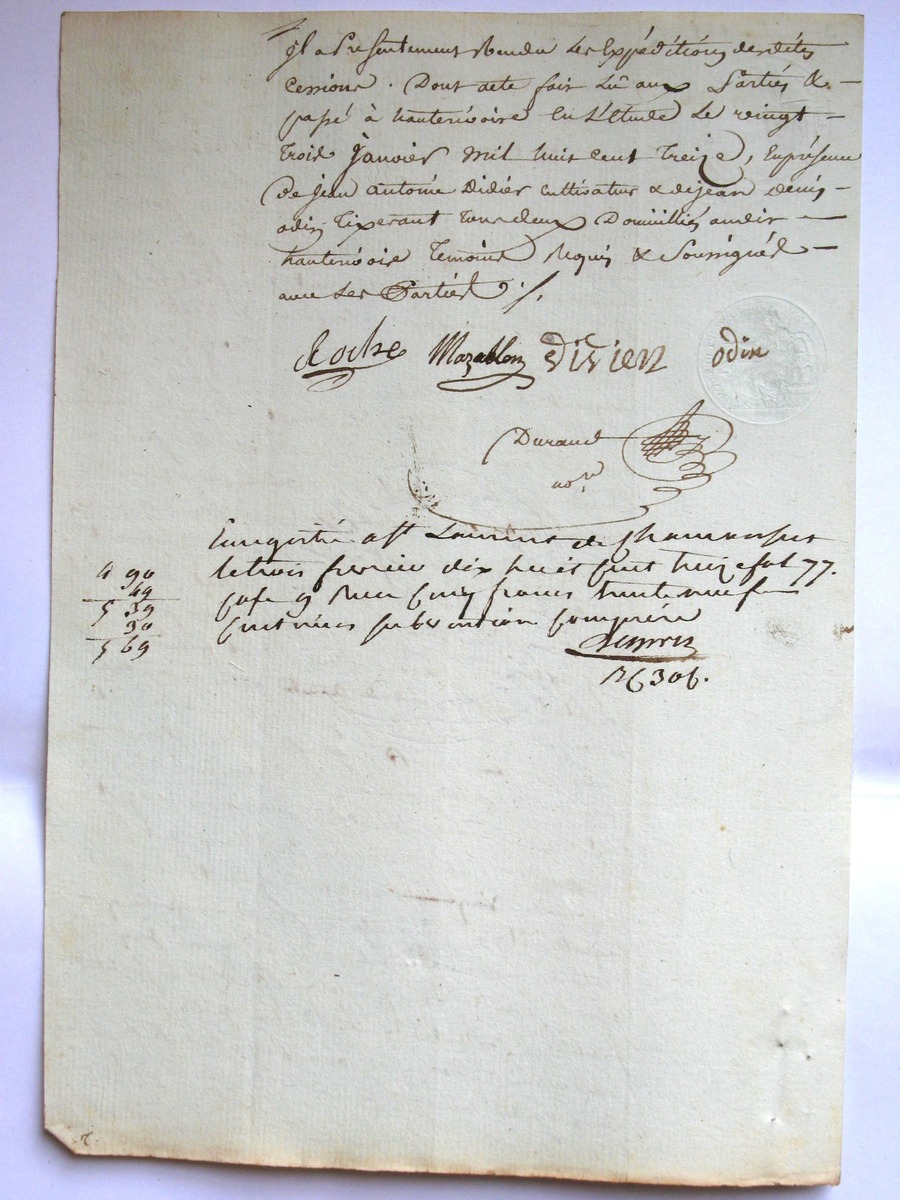 il a Présentement Rendu Les Expéditions desdites
Cessions. Dont acte fait Lû aux Parties &
passé à hauterivoire En L'étude Le vingt
Trois Janvier Mil huit cent Treize, En présence
De Jean antoine Didier Cultivateur & de jean denis
odin Tixerant Tous deux Domiciliés audit
hauterivoire Temoins Requis & Soussignés
avec Les Parties ./.
Roche Mazallon didier odin
Durand
nore
Enregistré a St Laurent de Chamousset
le trois fevrier dix huit cent treize fol 77.
case 9 Reçu cinq francs trente neuf
centimes subvention comprise
4 90
49
5 39
30
5 69